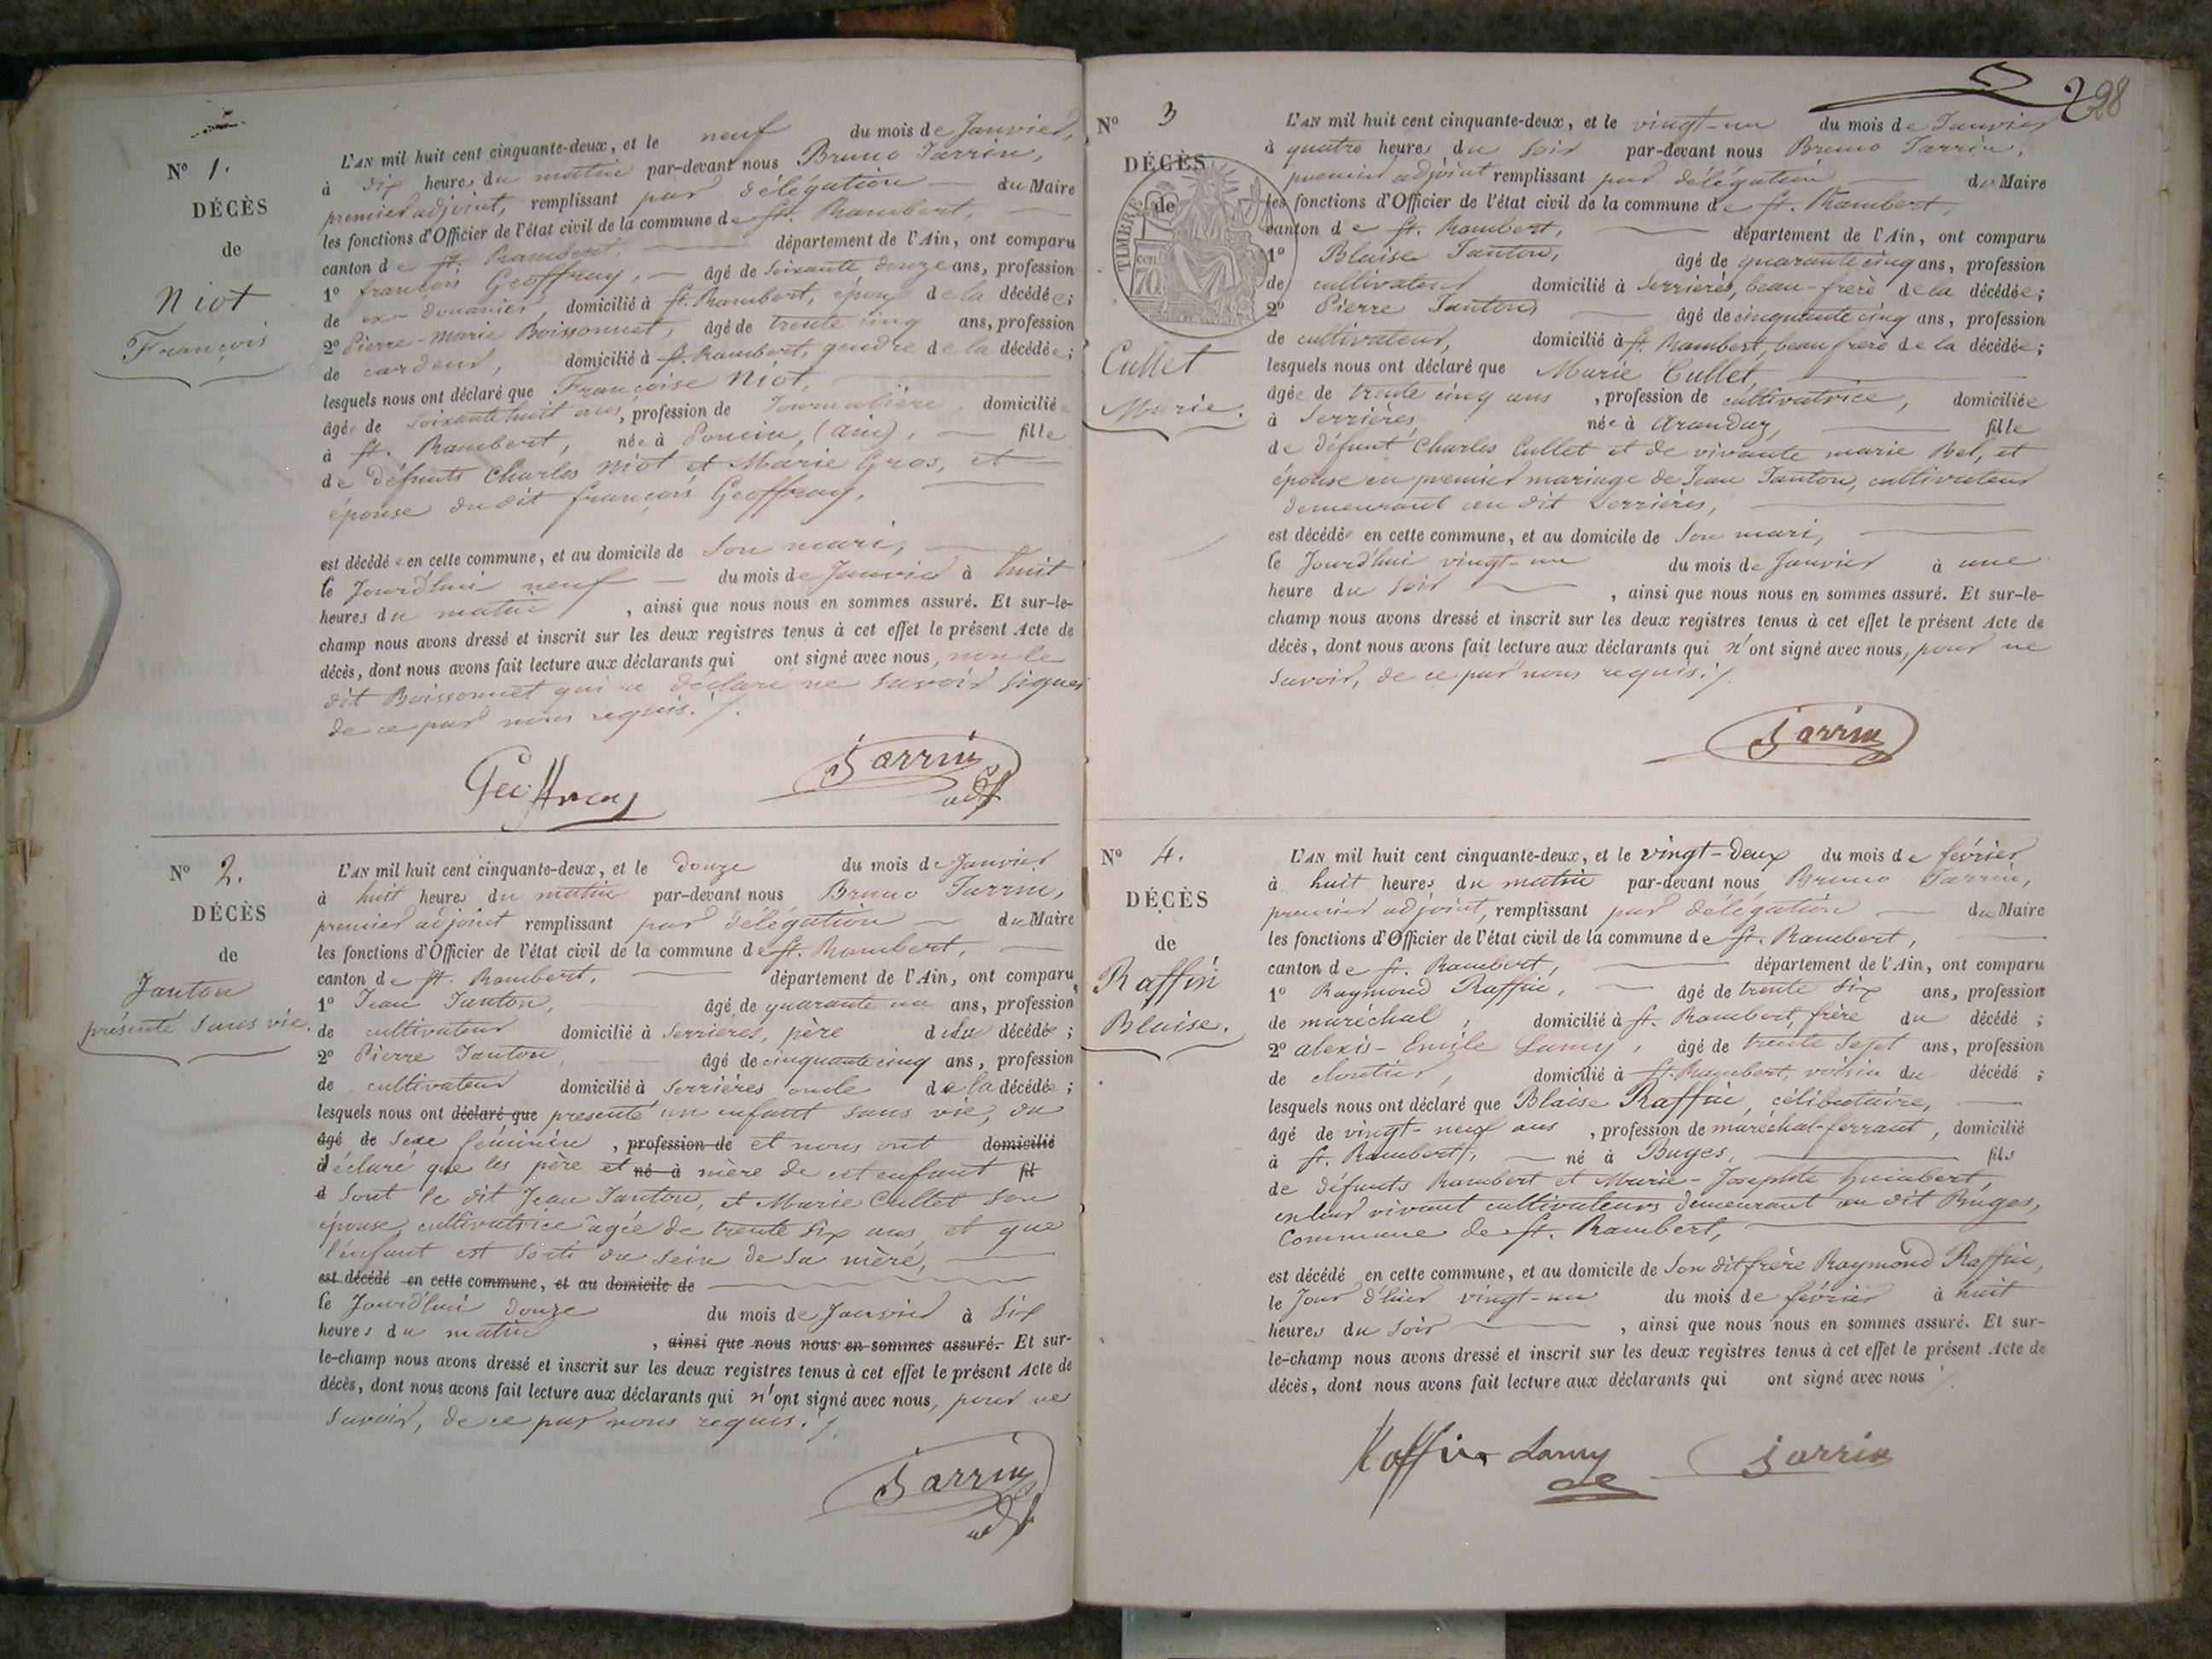 N° 1.
DÉCÈS
de
Niot
François
L'AN mil huit cent cinquante-deux, et le neuf du mois de Janvier,
à dix heures du matin par-devant nous Bruno Jarrin,
premier adjoint, remplissant par délégation du Maire
les fonctions d'Officier de l'état civil de la commune de St. Rambert,
canton de St. Rambert, département de l'Ain, ont comparu
1° françois Geoffray, âgé de Soixante douze ans, profession
de ex-douanier, domicilié à St. Rambert, époux de la décédée;
2° Pierre-Marie Boissonnet, âgé de trente cinq ans, profession
de cardeur, domicilié à St. Rambert, gendre de la décédée;
lesquels nous ont déclaré que Françoise Niot,
âgée de Soixante huit ans, profession de Journalière, domiciliée
à St. Rambert, née à Poncin, (ain), fille
de défunts Charles Niot et Marie Gros, et
épouse du dit françois Geoffray,
est décédée en cette commune, et au domicile de Son mari,
le Jourd'hui neuf du mois de Janvier à huit
heures du matin, ainsi que nous nous en sommes assuré. Et sur-le-
champ nous avons dressé et inscrit sur les deux registres tenus à cet effet le présent Acte de
décès, dont nous avons fait lecture aux déclarants qui ont signé avec nous, non le
dit Boissonnet qui a déclaré ne Savoir Signer
de ce par nous requis. /.
Geoffray Jarrin adj
N° 2.
DÉCÈS
de
Janton
présenté Sans vie.
L'AN mil huit cent cinquante-deux, et le douze du mois de Janvier
à huit heures du matin par-devant nous Bruno Jarrin,
premier adjoint remplissant par délégation du Maire
les fonctions d'Officier de l'état civil de la commune de St. Rambert,
canton de St. Rambert, département de l'Ain, ont comparu
1° Jean Janton, âgé de quarante un ans, profession
de cultivateur domicilié à Serrières, père de la décédée;
2° Pierre Janton, âgé de cinquante cinq ans, profession
de cultivateur domicilié à Serrières oncle de la décédée;
lesquels nous ont déclaré que présenté un enfant Sans vie, du
âgé de Sexe féminin, profession de et nous ont domicilié
déclaré que les père et né à mère de cet enfant fil
d Sont le dit Jean Janton, et Marie Cullet Son
épouse, cultivatrice âgée de trente Six ans, et que
l'enfant est Sorti du Sein de Sa mère,
est décédé en cette commune, et au domicile de
le Jourd'hui douze du mois de Janvier à Six
heures du matin, ainsi que nous nous en sommes assuré. Et sur-
le-champ nous avons dressé et inscrit sur les deux registres tenus à cet effet le présent Acte de
décès, dont nous avons fait lecture aux déclarants qui n'ont signé avec nous, pour ne
Savoir, de ce par nous requis. /.
Jarrin adj
228
N° 3
DÉCÈS
de
TIMBRE
70 cen
Cullet
Marie.
L'AN mil huit cent cinquante-deux, et le vingt-un du mois de Janvier
à quatre heures du Soir par-devant nous Bruno Jarrin,
premier adjoint remplissant par délégation du Maire
les fonctions d'Officier de l'état civil de la commune de St. Rambert,
canton de St. Rambert, département de l'Ain, ont comparu
1° Blaise Janton, âgé de quarante cinq ans, profession
de cultivateur domicilié à Serrières, beau-frère de la décédée;
2° Pierre Janton, âgé de cinquante cinq ans, profession
de cultivateur, domicilié à St. Rambert, beau frère de la décédée;
lesquels nous ont déclaré que Marie Cullet,
âgée de trente cinq ans, profession de cultivatrice, domiciliée
à Serrières, née à Arandaz, fille
de défunt Charles Cullet et de vivante marie Bel, et
épouse en premier mariage de Jean Janton, cultivateur
demeurant au dit Serrières,
est décédée en cette commune, et au domicile de Son mari,
le Jourd'hui vingt-un du mois de Janvier à une
heure du Soir, ainsi que nous nous en sommes assuré. Et sur-le-
champ nous avons dressé et inscrit sur les deux registres tenus à cet effet le présent Acte de
décès, dont nous avons fait lecture aux déclarants qui n'ont signé avec nous, pour ne
Savoir, de ce par nous requis. /.
Jarrin
N° 4.
DÉCÈS
de
Raffin
Blaise.
L'AN mil huit cent cinquante-deux, et le vingt-deux du mois de février
à huit heures du matin par-devant nous Bruno Jarrin,
premier adjoint, remplissant par délégation du Maire
les fonctions d'Officier de l'état civil de la commune de St. Rambert,
canton de St. Rambert, département de l'Ain, ont comparu
1° Raymond Raffin, âgé de trente Six ans, profession
de maréchal, domicilié à St. Rambert, frère du décédé;
2° alexis-Emile Lamy, âgé de trente Sept ans, profession
de cloutier, domicilié à St. Rambert, voisin du décédé;
lesquels nous ont déclaré que Blaise Raffin, célibataire,
âgé de vingt-neuf ans, profession de maréchal-ferrant, domicilié
à St. Rambert, né à Buges, fils
de défunts Rambert et Marie-Josephte humbert,
en leur vivant cultivateurs demeurant au dit Buges,
Commune de St. Rambert,
est décédé en cette commune, et au domicile de Son dit frère Raymond Raffin,
le Jour d'hier vingt-un du mois de février à huit
heures du Soir, ainsi que nous nous en sommes assuré. Et sur-
le-champ nous avons dressé et inscrit sur les deux registres tenus à cet effet le présent Acte de
décès, dont nous avons fait lecture aux déclarants qui ont signé avec nous /.
Raffin Lamy Jarrin